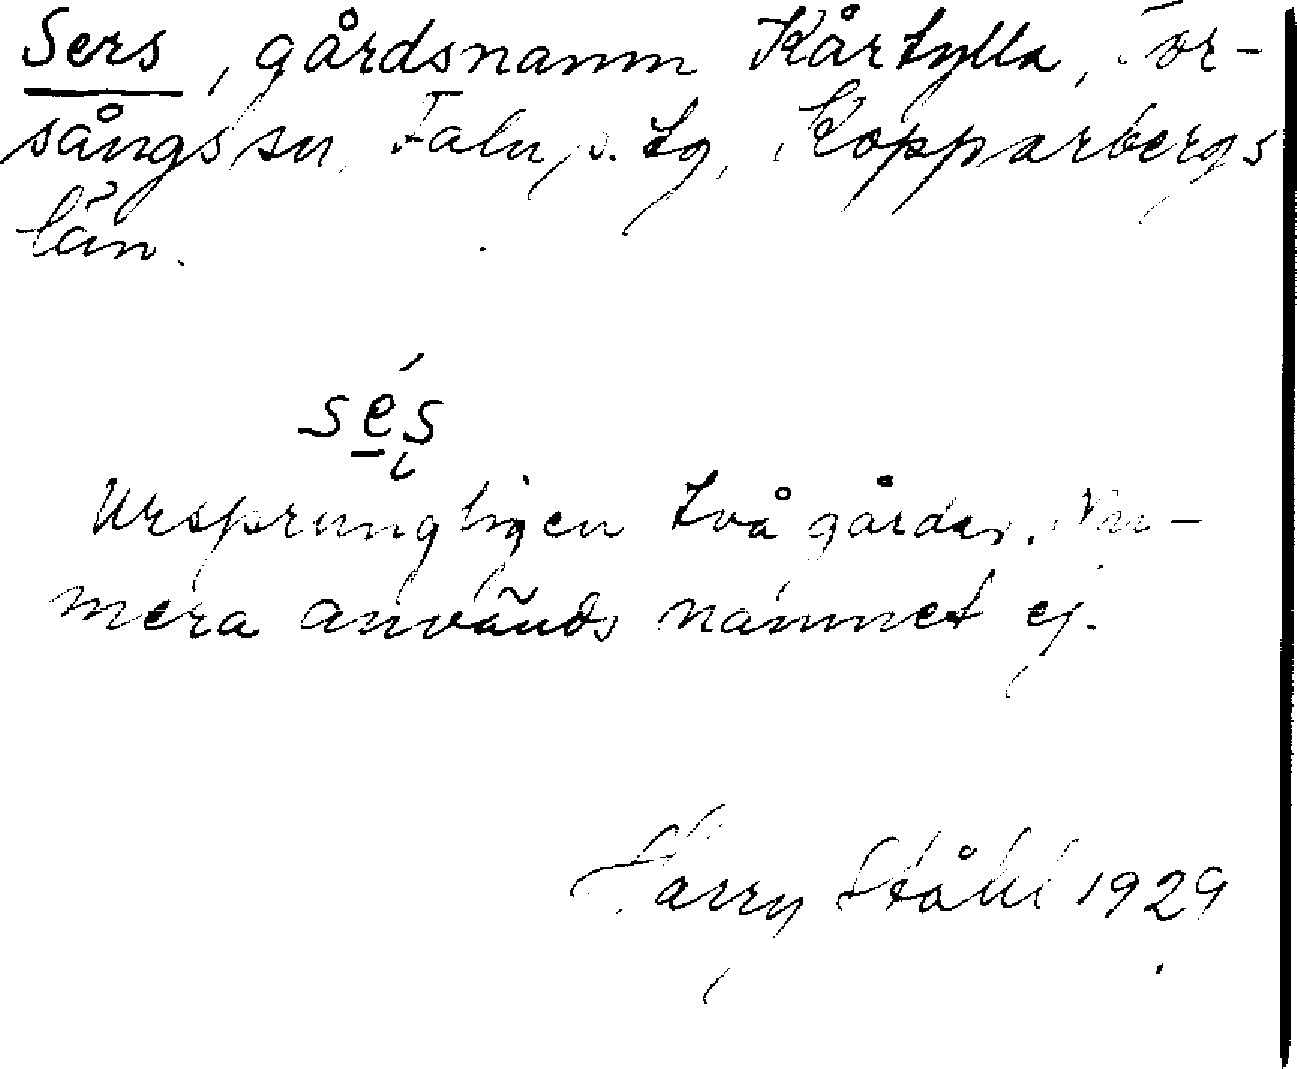 Sers, gårdsnamn Kårtylla, Tor-
sångs sn, Falu s. tg, Kopparbergs
län.
sés
Ursprungligen två gårdar. Nu-
mera används namnet ej.
Harry Ståhl 1929